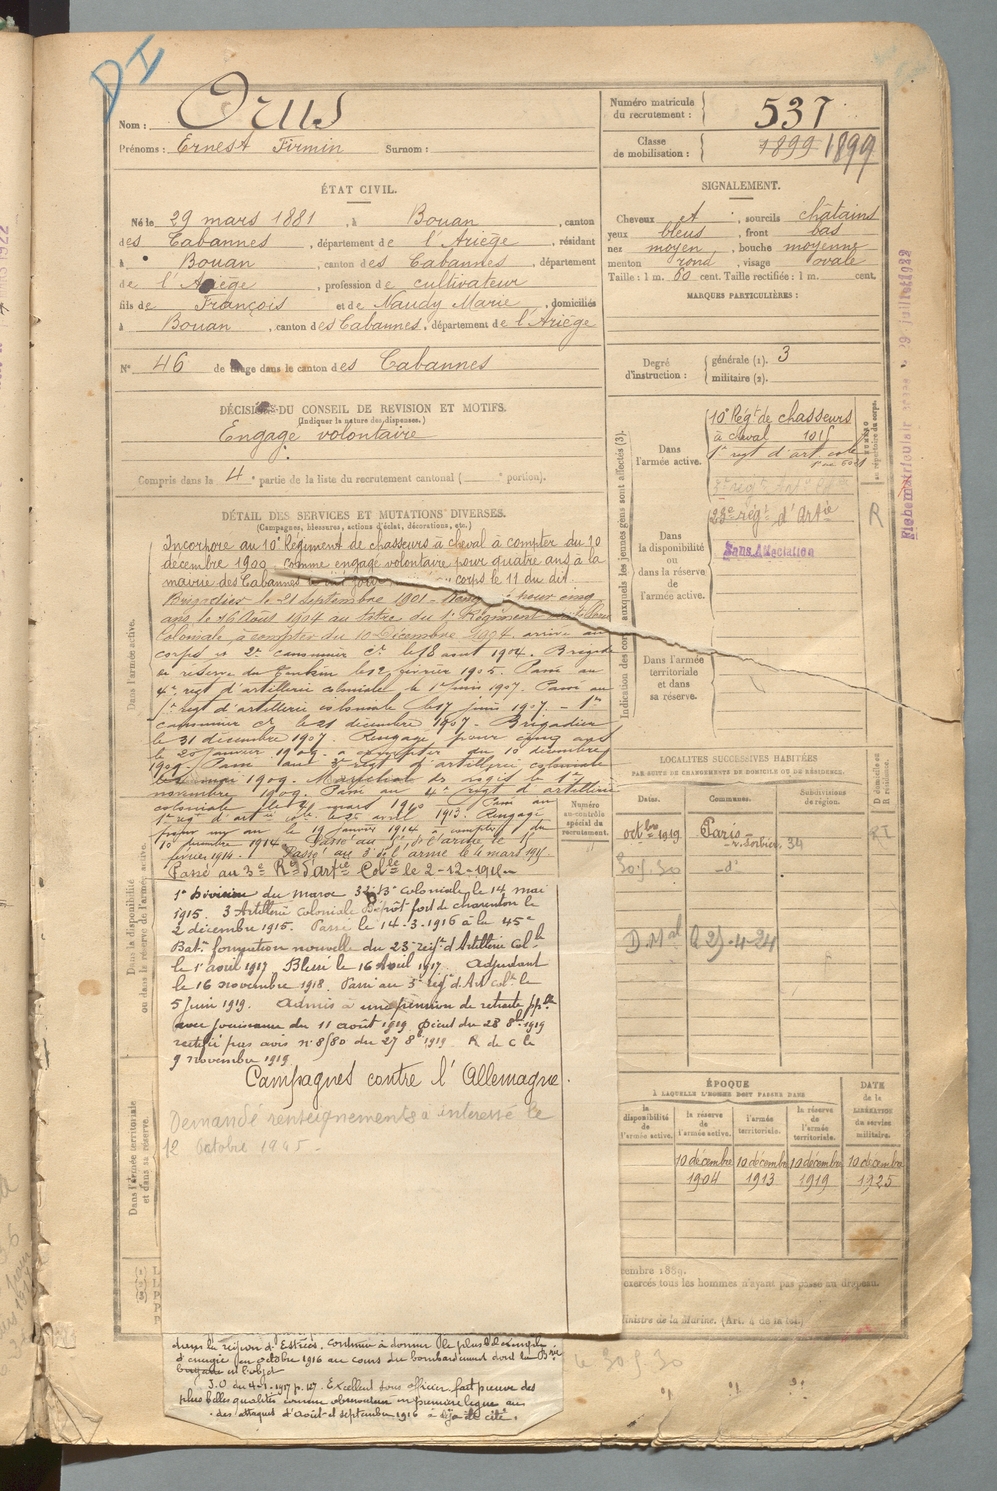 DI
Nom : Orus
Prénoms : Ernest Firmin Surnom :
Numéro matricule du recrutement : 537
Classe de mobilisation : 1899 1899
ÉTAT CIVIL.
Né le 29 mars 1881, à Bouan, canton
des Cabannes, département de l'Ariège, résidant
à Bouan, canton des Cabannes, département
de l'Ariège, profession de cultivateur
fils de François et de Naudy Marie, domiciliés
à Bouan, canton des Cabannes, département de l'Ariège
N° 46 de tirage dans le canton des Cabannes
SIGNALEMENT.
Cheveux et, sourcils châtains
yeux bleus, front bas
nez moyen, bouche moyenne
menton rond, visage ovale
Taille : 1 m. 60 cent. Taille rectifiée : 1 m. cent.
MARQUES PARTICULIÈRES :
Degré d'instruction : générale (1). 3
militaire (2).
DÉCISION DU CONSEIL DE REVISION ET MOTIFS.
(Indiquer la nature des dispenses.)
Engagé volontaire
Compris dans la 4e partie de la liste du recrutement cantonal ( e portion).
DÉTAIL DES SERVICES ET MUTATIONS DIVERSES.
(Campagnes, blessures, actions d'éclat, décorations, etc.)
Incorporé au 10e Régiment de chasseurs à cheval à compter du 10
décembre 1900 comme engagé volontaire pour quatre ans à la
mairie des Cabannes corps le 11 du dit.
Brigadier le 21 Septembre 1901 - pour cinq
ans le 16 Août 1904 au titre du 1er Régiment
Coloniale à compter du 10 Décembre 1904. arrivé au
corps et 2e canonnier ct le 18 août 1904. Brigadier
en réserve du Tonkin le 12 février 1905. Passé au
4e régt d'artillerie coloniale le 1er juin 1907. Passé au
1er régt d'artillerie coloniale le 17 juin 1907. - 1er
canonnier ct le 21 décembre 1907 - Brigadier
le 31 décembre 1907. Rengagé pour cinq ans
le 20 janvier 1909 à compter du 10 décembre
1909. Passé au 3e régt d'artillerie coloniale
1909. Maréchal des logis le 1er
novembre 1909. Passé au 4e régt d'artillerie
coloniale le mars 1910 Passé au
1er régt d'art col. le 25 avril 1913. Rengagé
pour un an le 19 janvier 1914 à compter du
10 décembre 1914
février 1914. Passé au 3e de l'arme le 4 mars 1915.
Passé au 3e Rgt d'artie Colle le 2-12-1915
1e Division du maroc 32 B coloniale le 14 mai
1915. 3 Artillerie coloniale Dépôt fort de charenton le
2 décembre 1915. Passé le 14-3-1916 à la 45e
Batn formation nouvelle du 23 régt d'Artillerie Cole
le 1er août 1917 Blessé le 16 Avril 1917. Adjudant
le 16 novembre 1918. Passé au 3e régt d'Art cole le
5 juin 1919. Admis à une pension de retraite pple
avec jouissance du 11 août 1919 décret du 28 8b 1919
rectifié par avis n° 8580 du 27 8b 1919. R de C le
9 novembre 1919
Campagnes contre l'Allemagne.
Demandé renseignements à intéressé le
12 octobre 1945.
dans la région d'Estrées. Continue à donner le plus bel exemple
d'énergie en octobre 1916 au cours du bombardement dont la Bie
en l'objet
J.O. du 4-1-1917 p. 127. Excellent sous officier fait preuve des
plus belles qualités comme observateur en première ligne au
des attaques d'Août et septembre 1916 a déjà été cité.
Dans l'armée active.
Dans la disponibilité ou dans la réserve de l'armée active.
Dans l'armée territoriale et dans sa réserve.
Indication des corps auxquels les jeunes gens sont affectés (3).
Dans l'armée active.
10e Régt de chasseurs
à cheval 1015
1er régt d'art. cole
Dans la disponibilité ou dans la réserve de l'armée active.
23e régt d'Artie
Sans Affectation
Dans l'armée territoriale et dans sa réserve.
NUMÉRO au répertoire du corps.
R
Numéro au contrôle spécial du recrutement.
LOCALITÉS SUCCESSIVES HABITÉES
PAR SUITE DE CHANGEMENTS DE DOMICILE OU DE RÉSIDENCE.
Dates. Communes. Subdivisions de région. D domicile ou R résidence.
octbre 1919 Paris
r. Sorbier, 34
30.5.30 d°
ÉPOQUE
À LAQUELLE L'HOMME DOIT PASSER DANS
la disponibilité de l'armée active. la réserve de l'armée active. l'armée territoriale. la réserve de l'armée territoriale.
DATE de la LIBÉRATION du service militaire.
10 décembre 1904 10 décembre 1913 10 décembre 1919 10 décembre 1925
cembre 1889.
exercés tous les hommes n'ayant pas passé au drapeau.
ministre de la Marine. (Art. 4 de la loi)
le 30 5 30